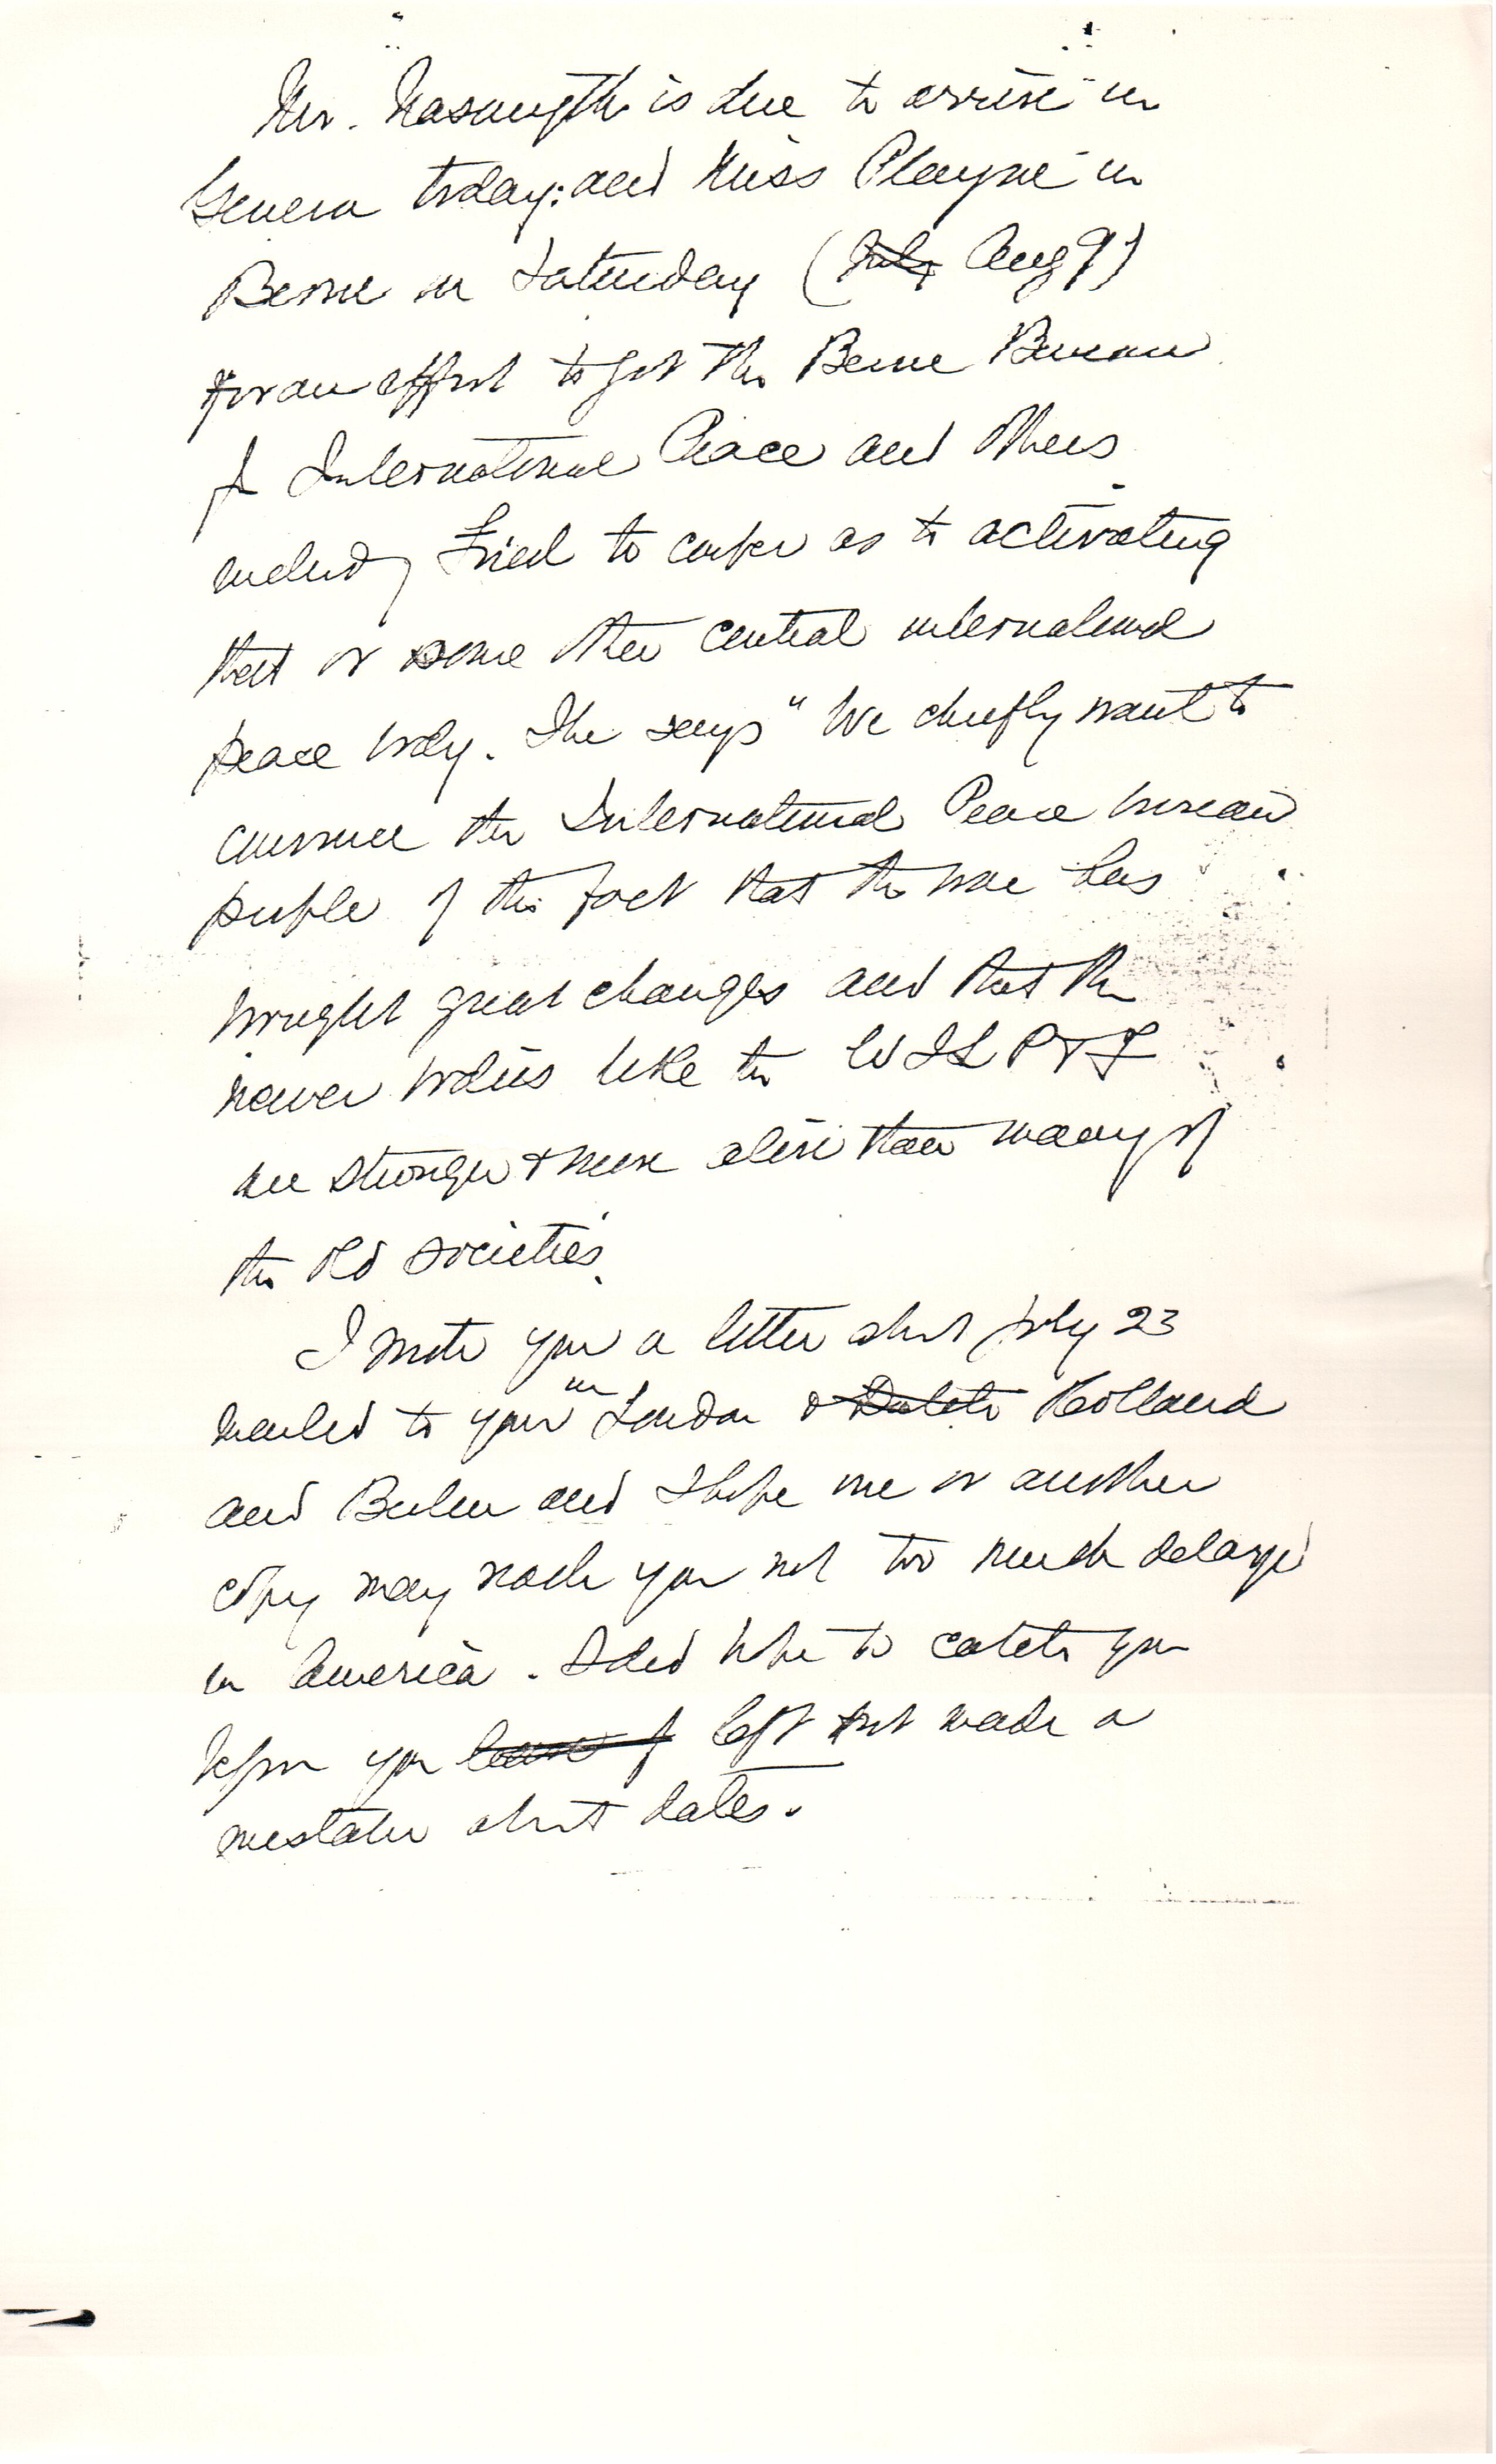 Mr. Nasmyth is due to arrive in
Geneva today; and Miss Playne in
Berne on Saturday (July Aug 9)
for an effort to get the Berne Bureau
of International Peace and others
including Fried to confer as to activating
that or some other central international
peace body. She says "We chiefly want to
convince the International Peace bureau
people of the fact that the war has
brought great changes and that the
newer bodies like the WILP&F
are stronger & more alive than many of
the old societies.
I wrote you a letter about July 23
mailed to you in London & Dutch Holland
and Berlin and I hope one or another
copy may reach you not too much delayed
in America. I did hope to catch you
before you left but made a
mistake about dates.